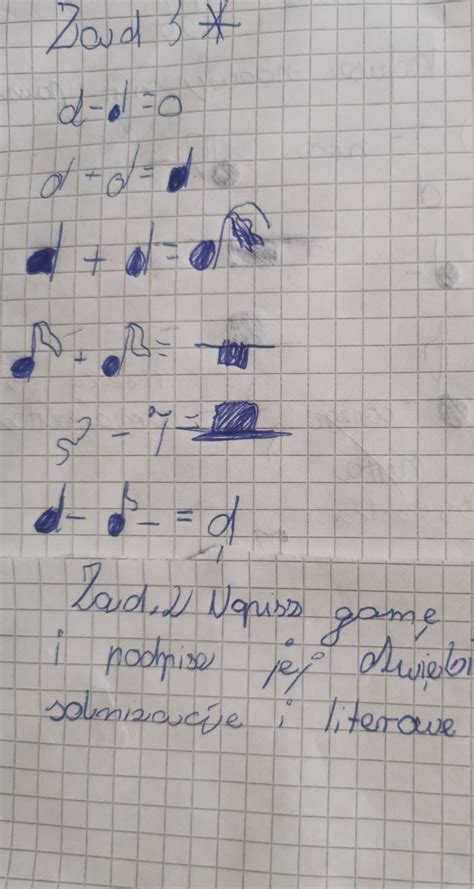 Zad 3 *
d - d = o
d - d = d
d + d = d
+ =
- 7 =
d - - = d
Zad. 2 Napisz gamę
i podpisz jej dźwięki
solmizacje i literowe